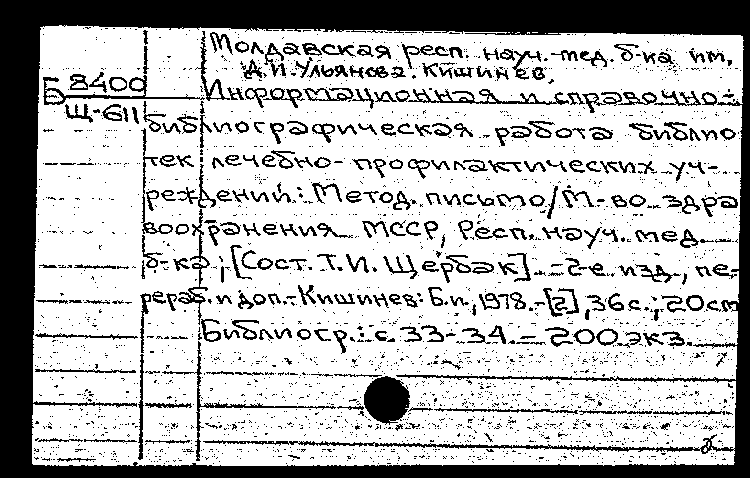 Молдавская респ. науч.-мед. б-ка им.
А.И. Ульянова. Кишинев.
Б 8400
Щ-611
Информационная и справочно-
библиографическая работа библио
тек лечебно-профилактических уч-
реждений: Метод. письмо/М-во здра
воохранения МССР, Респ. науч. мед.
б-ка; [Сост. Т.И. Щербак]. -2-е изд., пе-
рераб. и доп.-Кишинев: Б.и., 1978.-[2], 36 с.; 20 см
Библиогр.: с. 33-34. - 200 экз.